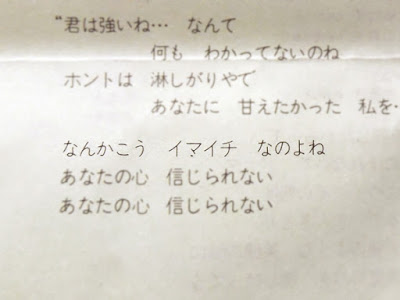 “君は強いね… なんて
何も わかってないのね
ホントは 淋しがりやで
あなたに 甘えたかった 私を…
なんかこう イマイチ なのよね
あなたの心 信じられない
あなたの心 信じられない